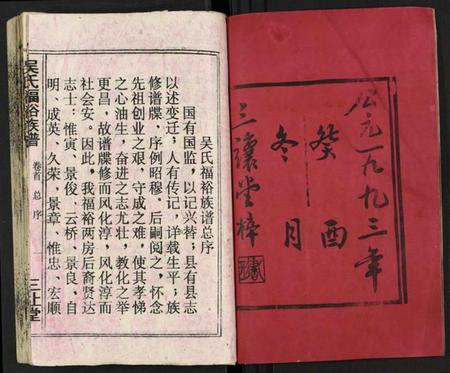 公元一九九三年
癸酉
冬月
三让堂梓
吴氏福裕族谱总序
国有国监，以记兴替；县有县志
以述变迁；人有传记，详载生平；族
修谱牒，序例昭穆。后嗣阅之，怀念
先祖创业之艰，守成之难，使其孝悌
之心油生，奋进之志尤壮，教化之举
更昌，故谱牒修而风化淳，风化淳而
社会安。因此，我福裕两房后裔贤达
志士：惟寅、景俊、云桥、景良、自
明、成英、久荣、景章、惟忠、宏顺
吴氏福裕族谱
卷首 总序
三让堂